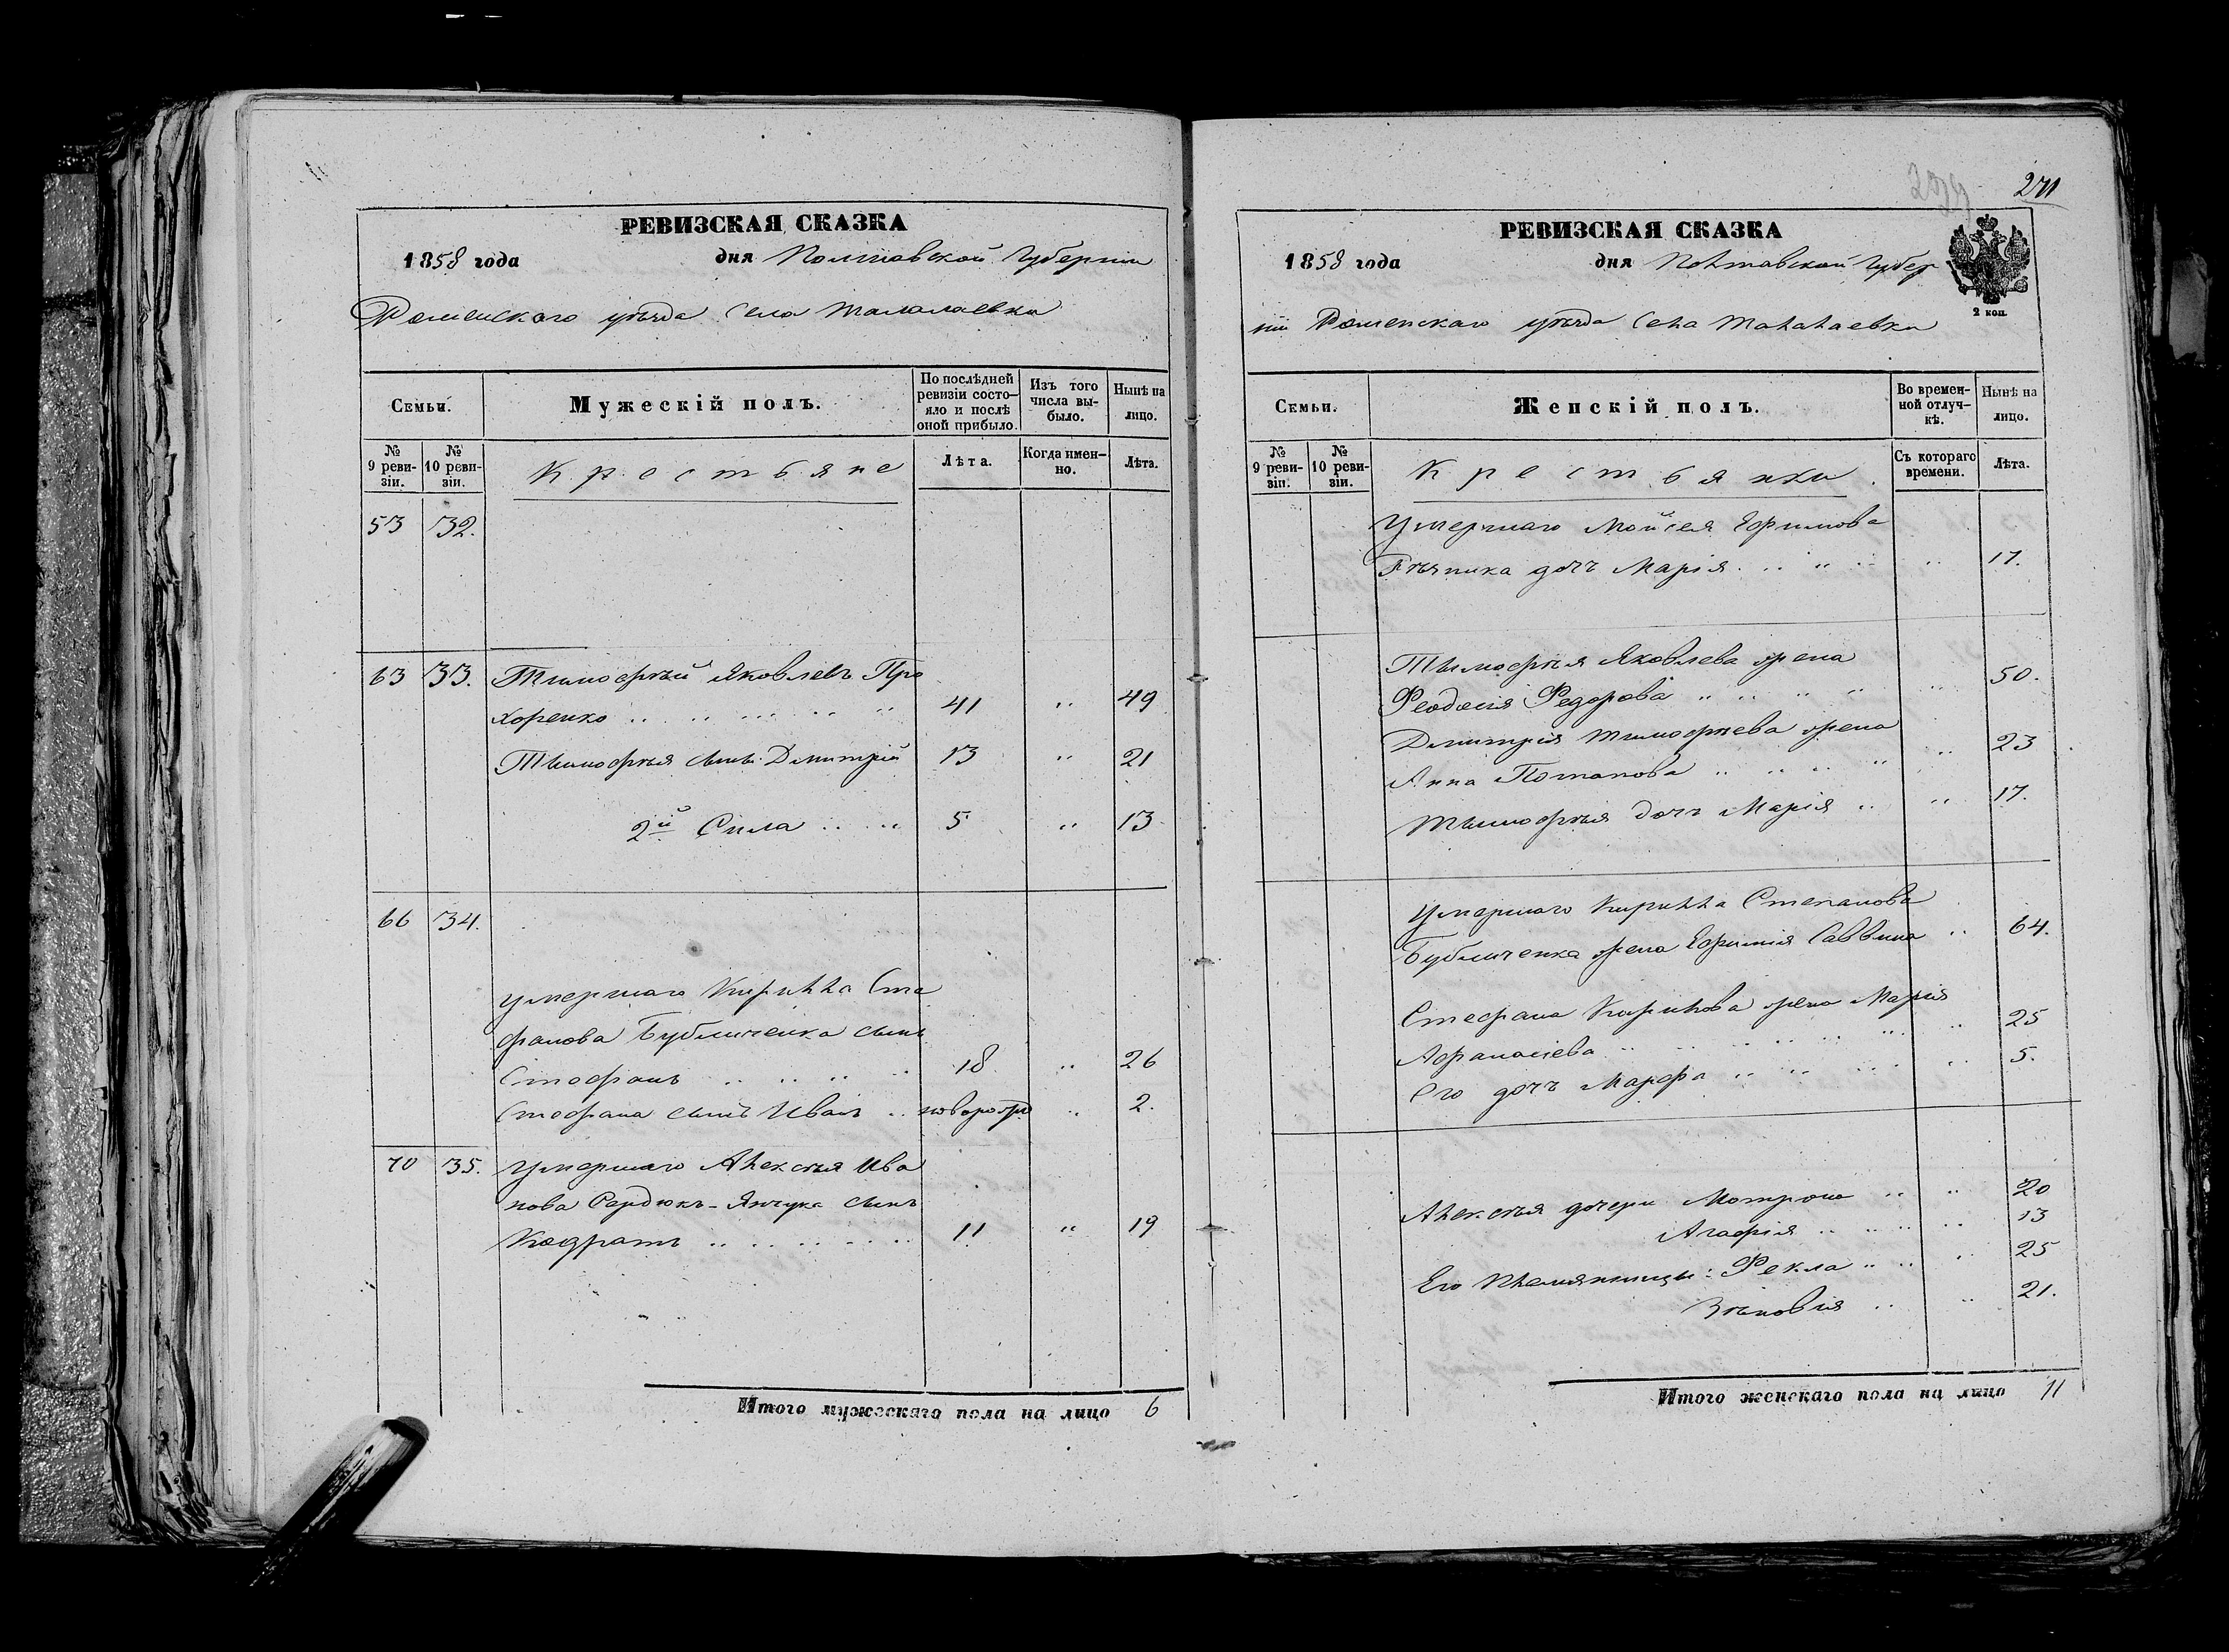 РЕВИЗСКАЯ СКАЗКА
1858 года дня Полтавской Губернии
Роменского уѣзда Села Талалаевки
Семьи. Мужескій полъ. По послѣдней ревизіи состо-яло и послѣ оной прибыло. Изъ того числа вы-было. Нынѣ на лицо.
№ 9 реви-зіи. № 10 реви-зіи. Крестьяне Лѣта. Когда имен-но. Лѣта.
53 32.
63 33. Тимофѣй Яковлевъ Про
хоренко 41 " 49
Тимофѣя сынъ Дмитрій 13 " 21
2й Сила 5 " 13
66 34.
умершаго Кирилла Сте
фанова Бубличенка сынъ
Стефанъ 18 " 26
Стефана сынъ Иванъ новорожд " 2.
70 35. Умершаго Алексѣя Ива
нова Сердюкъ-Янчука сынъ
Кодратъ 11 " 19
Итого мужескаго пола на лицо 6
271
РЕВИЗСКАЯ СКАЗКА
1858 года дня Полтавской Губер
2 коп.
ніи Роменскаго уѣзда Села Талалаевки
Семьи. Женскій полъ. Во времен-ной отлуч-кѣ. Нынѣ на лицо.
№ 9 реви-зіи. № 10 реви-зіи. Крестьянки Съ котораго времени. Лѣта.
Умершаго Мойсея Ефимова
дочь Марія " 17.
Тимофѣя Яковлева жена
Феодосія Федорова " 50.
Дмитрія Тимофѣева жена
Анна Потапова " 23
Тимофѣя дочь Марія " 17.
Умершаго Кирилла Степанова
Бубличенка жена Ефимія Саввина " 64.
Стефана Кирилова жена Марія
Афанасіева " 25
Его дочь Марфа " 5.
Алексѣя дочери Мотрона " 20
Агафія " 13
Его племянницы: Фекла " 25
Зѣновія " 21.
Итого женскаго пола на лицо 11